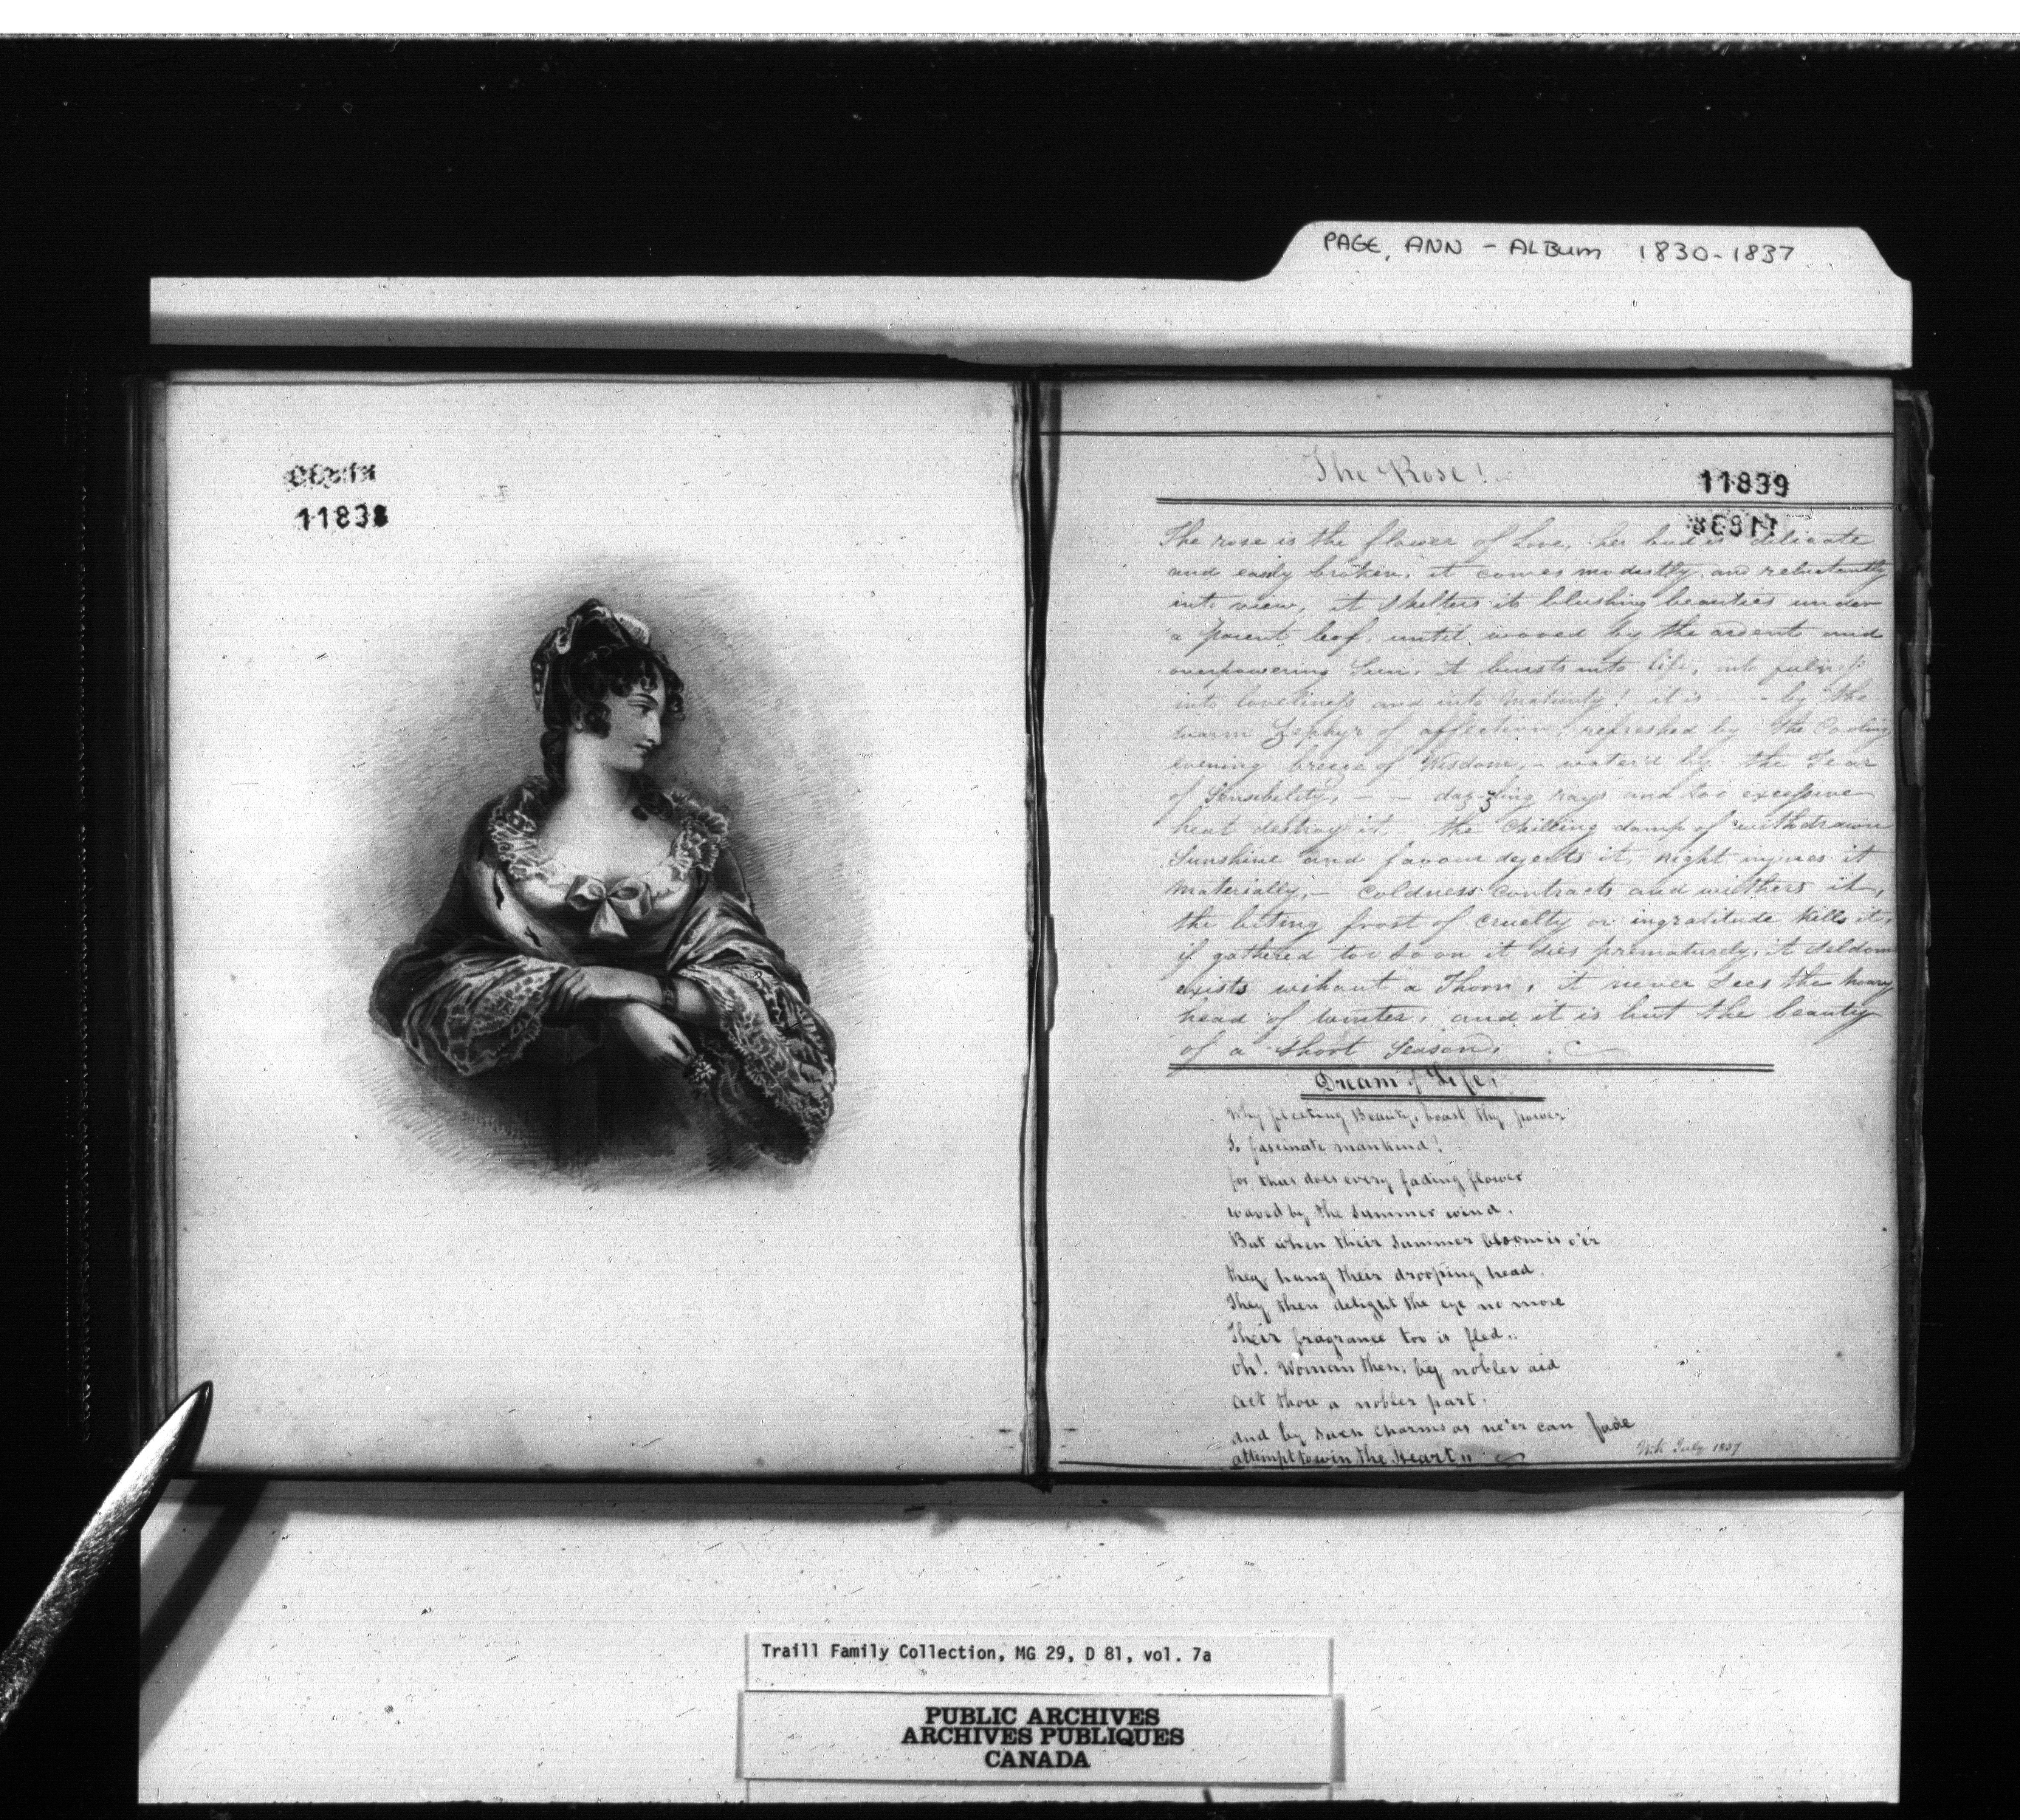 PAGE, ANN - ALBUM 1830-1837
11838
The Rose!
11839
The rose is the flower of Love, her bud is delicate
and easily broken, it comes modestly and reluctantly
into view, it shelters its blushing beauties under
a parent leaf, until wooed by the ardent and
overpowering Sun, it bursts into life, into fulness
into loveliness and into Maturity! it is ---- by the
warm Zephyr of affection, refreshed by the Cooling
evening breeze of Wisdom, - water'd by the Tear
of Sensibility, - - dazzling rays and too excessive
heat destroy it, - the Chilling damp of withdrawn
Sunshine and favour dejects it, night injures it
Materially, - Coldness Contracts and withers it,
the biting frost of Cruelty or ingratitude kills it,
if gathered too soon it dies prematurely, it seldom
exists wihout a Thorn, it never Sees the hoary
head of winter, and it is but the beauty
of a short Season.
Dream of Life,
Why fleeting Beauty, boast thy power
To fascinate mankind!
for thus does every fading flower
waved by the Summer wind.
But when their Summer bloom is o'er
they hang their drooping head,
They then delight the eye no more
Their fragrance too is fled..
Oh! Woman then, by nobler aid
Act thou a nobler part.
and by such Charms as ne'er can fade
attempt to win the Heart"
July 1837
Traill Family Collection, MG 29, D 81, vol. 7a
PUBLIC ARCHIVES
ARCHIVES PUBLIQUES
CANADA